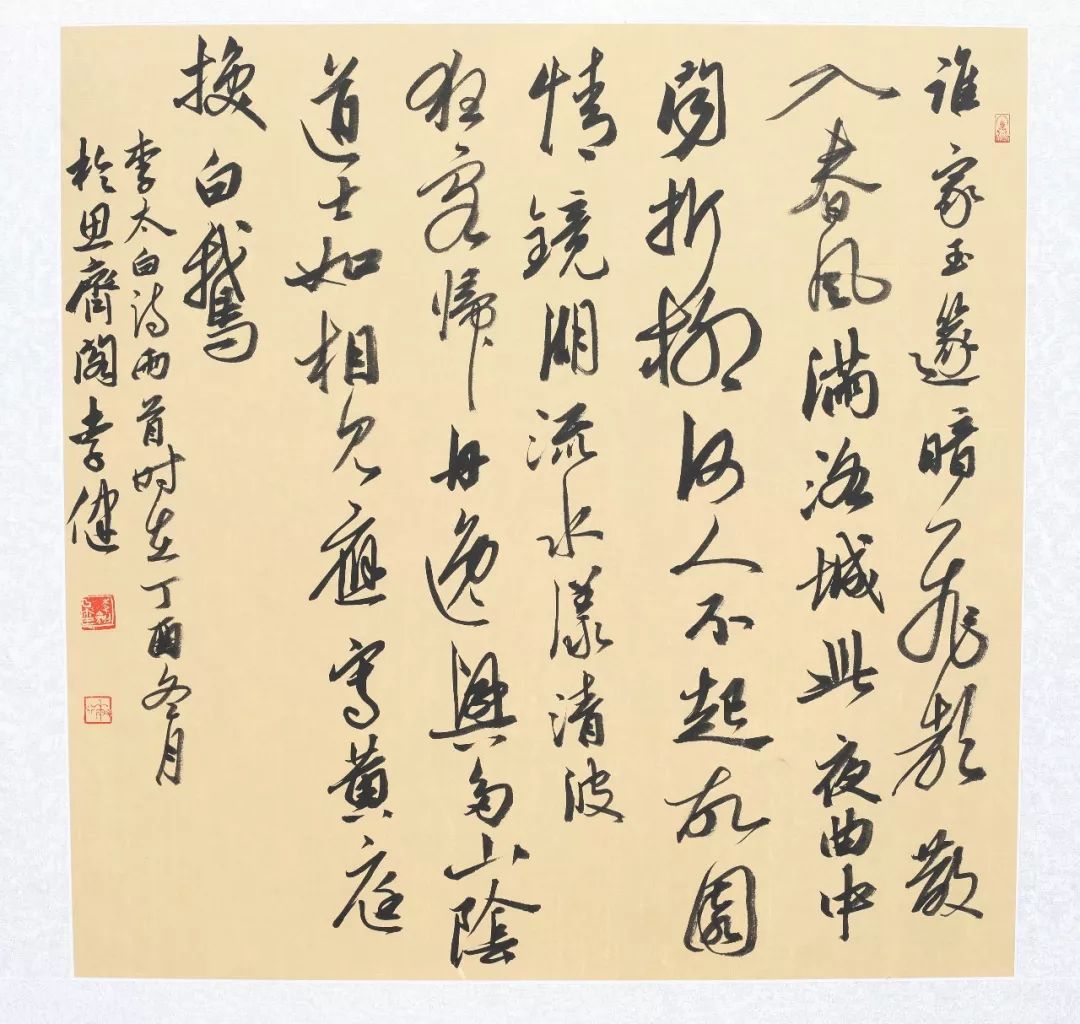 誰家玉篴暗飛聲散
入春風滿洛城此夜曲中
聞折柳何人不起故園
情鏡湖流水漾清波
狂客歸舟逸興多山陰
道士如相見應寫黃庭
換白鵝
李太白詩兩首時在丁酉冬月
於思齊閣李健